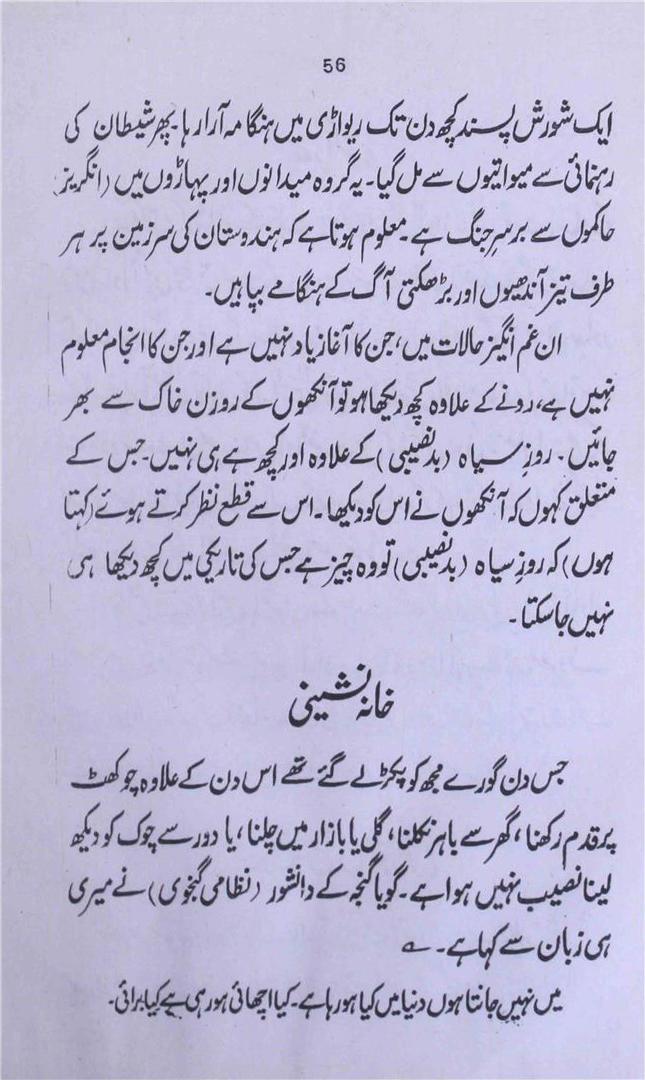 56
ایک شورش پسند کچھ دن تک ریواڑی میں ہنگامہ آرا رہا۔ پھر شیطان کی
رہنمائی سے میواتیوں سے مل گیا۔ یہ گروہ میدانوں اور پہاڑوں میں (انگریز)
حاکموں سے برسرِ جنگ ہے۔ معلوم ہوتا ہے کہ ہندوستان کی سرزمین پر ہر
طرف تیز آندھیوں اور بڑھکتی آگ کے ہنگامے بپا ہیں۔
ان غم انگیز حالات میں، جن کا آغاز یاد نہیں ہے اور جن کا انجام معلوم
نہیں ہے، رونے کے علاوہ کچھ دیکھا ہو تو آنکھوں کے روزن خاک سے بھر
جائیں۔ روزِ سیاہ (بدنصیبی) کے علاوہ اور کچھ ہے ہی نہیں۔ جس کے
متعلق کہوں کہ آنکھوں نے اس کو دیکھا۔ اس سے قطع نظر کرتے ہوئے (کہتا
ہوں) کہ روزِ سیاہ (بدنصیبی) تو وہ چیز ہے جس کی تاریکی میں کچھ دیکھا ہی
نہیں جا سکتا۔
خانہ نشینی
جس دن گورے مجھ کو پکڑ لے گئے تھے اس دن کے علاوہ چوکھٹ
پر قدم رکھنا، گھر سے باہر نکلنا، گلی یا بازار میں چلنا، یا دور سے چوک کو دیکھ
لینا نصیب نہیں ہوا ہے۔ گویا گنجہ کے دانشور (نظامی گنجوی) نے میری
ہی زبان سے کہا ہے۔ ؎
میں نہیں جانتا ہوں دنیا میں کیا ہو رہا ہے۔ کیا اچھائی ہو رہی ہے کیا برائی۔